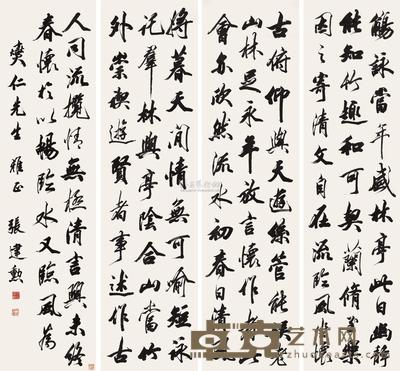 觴詠當年盛林亭此日幽靜
能知竹趣和可契蘭脩為樂
因之寄清文自在流臨風懷
古俯仰與天遊絲管能娛老
山林足永年放言懷作者
會尔欣然流水初春日清
將暮天閒情無可喻短詠
記羣林與亭陰合山當竹
外崇禊遊賢者事述作古
人同流攬情無極清言興未終
春懷於以暢臨水又臨風為
燮仁先生雅正 張建勳